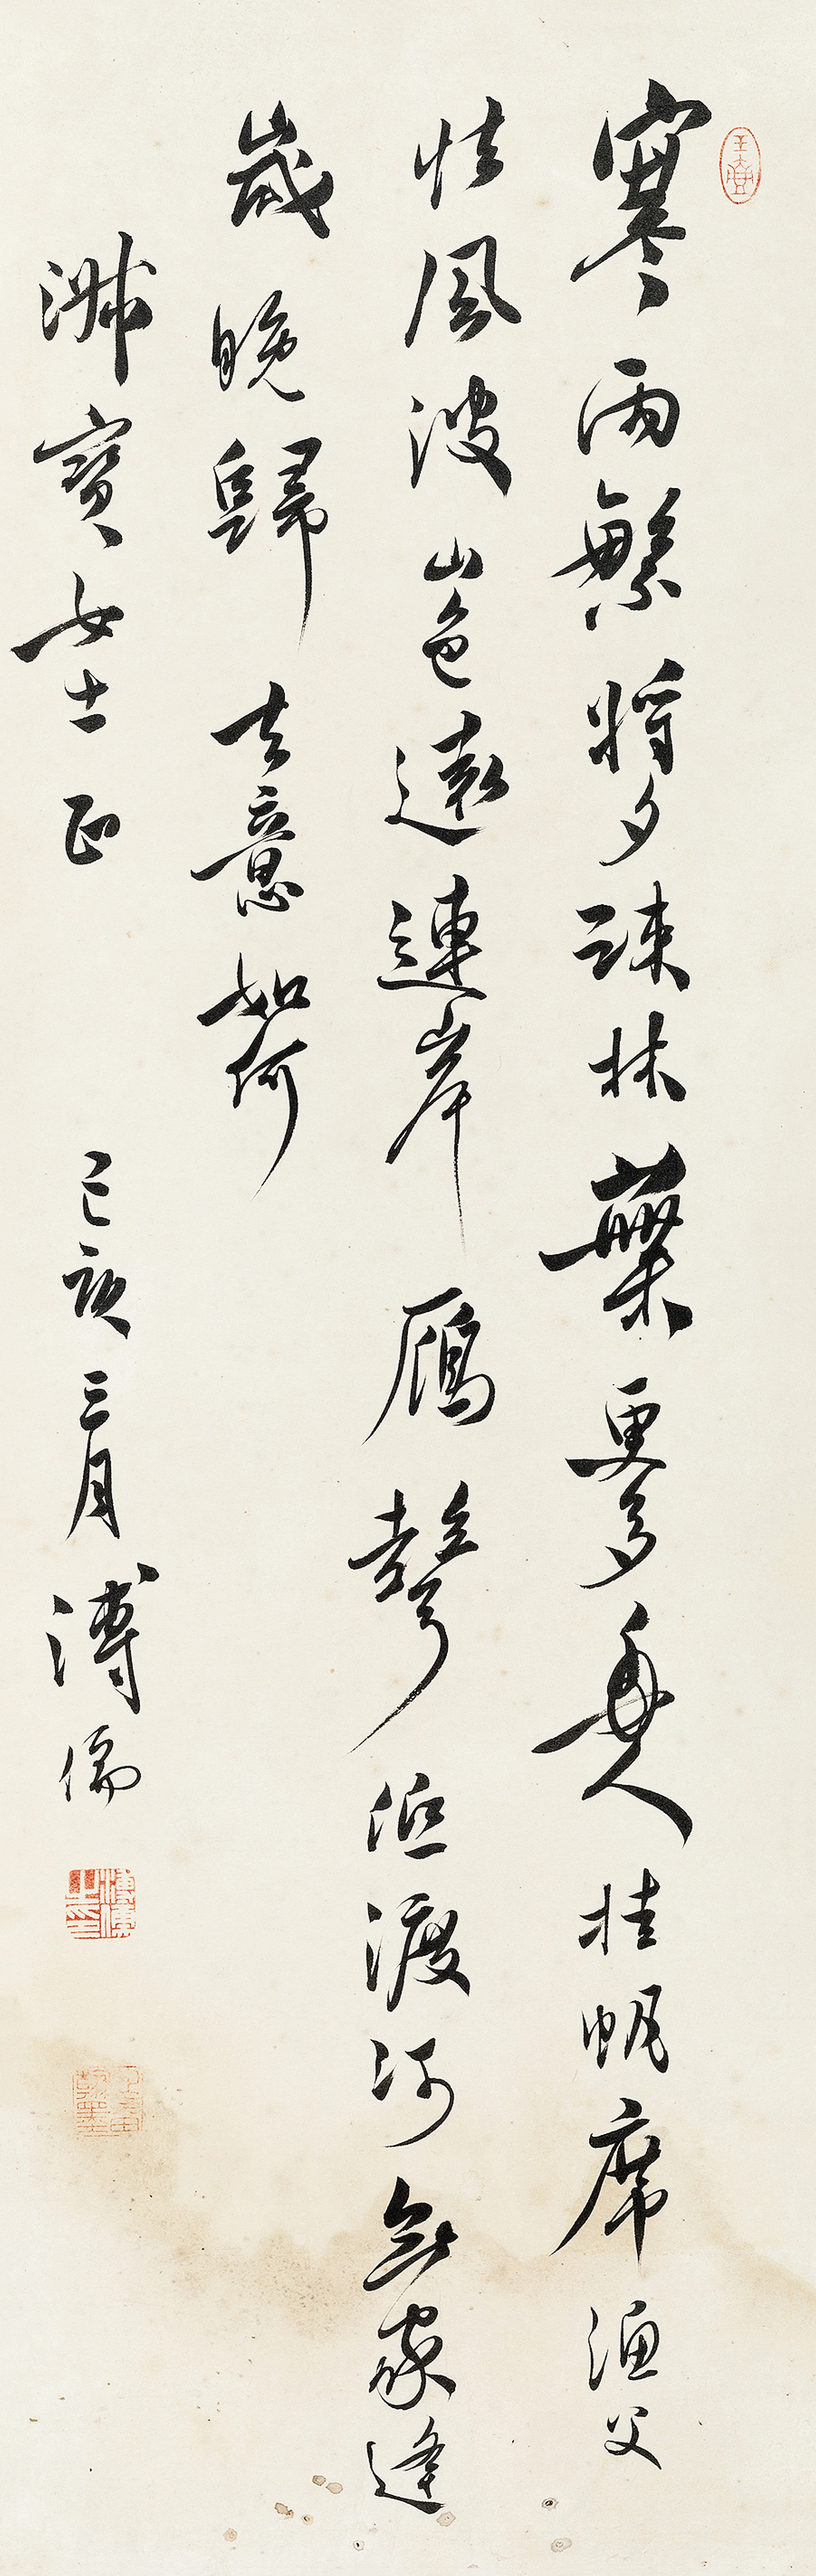 寒雨繁將夕疎林葉更多舟人挂帆席漁父
怯風波山色遠連岸鴈聲低渡河無家逢
歲晚歸去意如何
淑寶女士正 己亥三月 溥儒